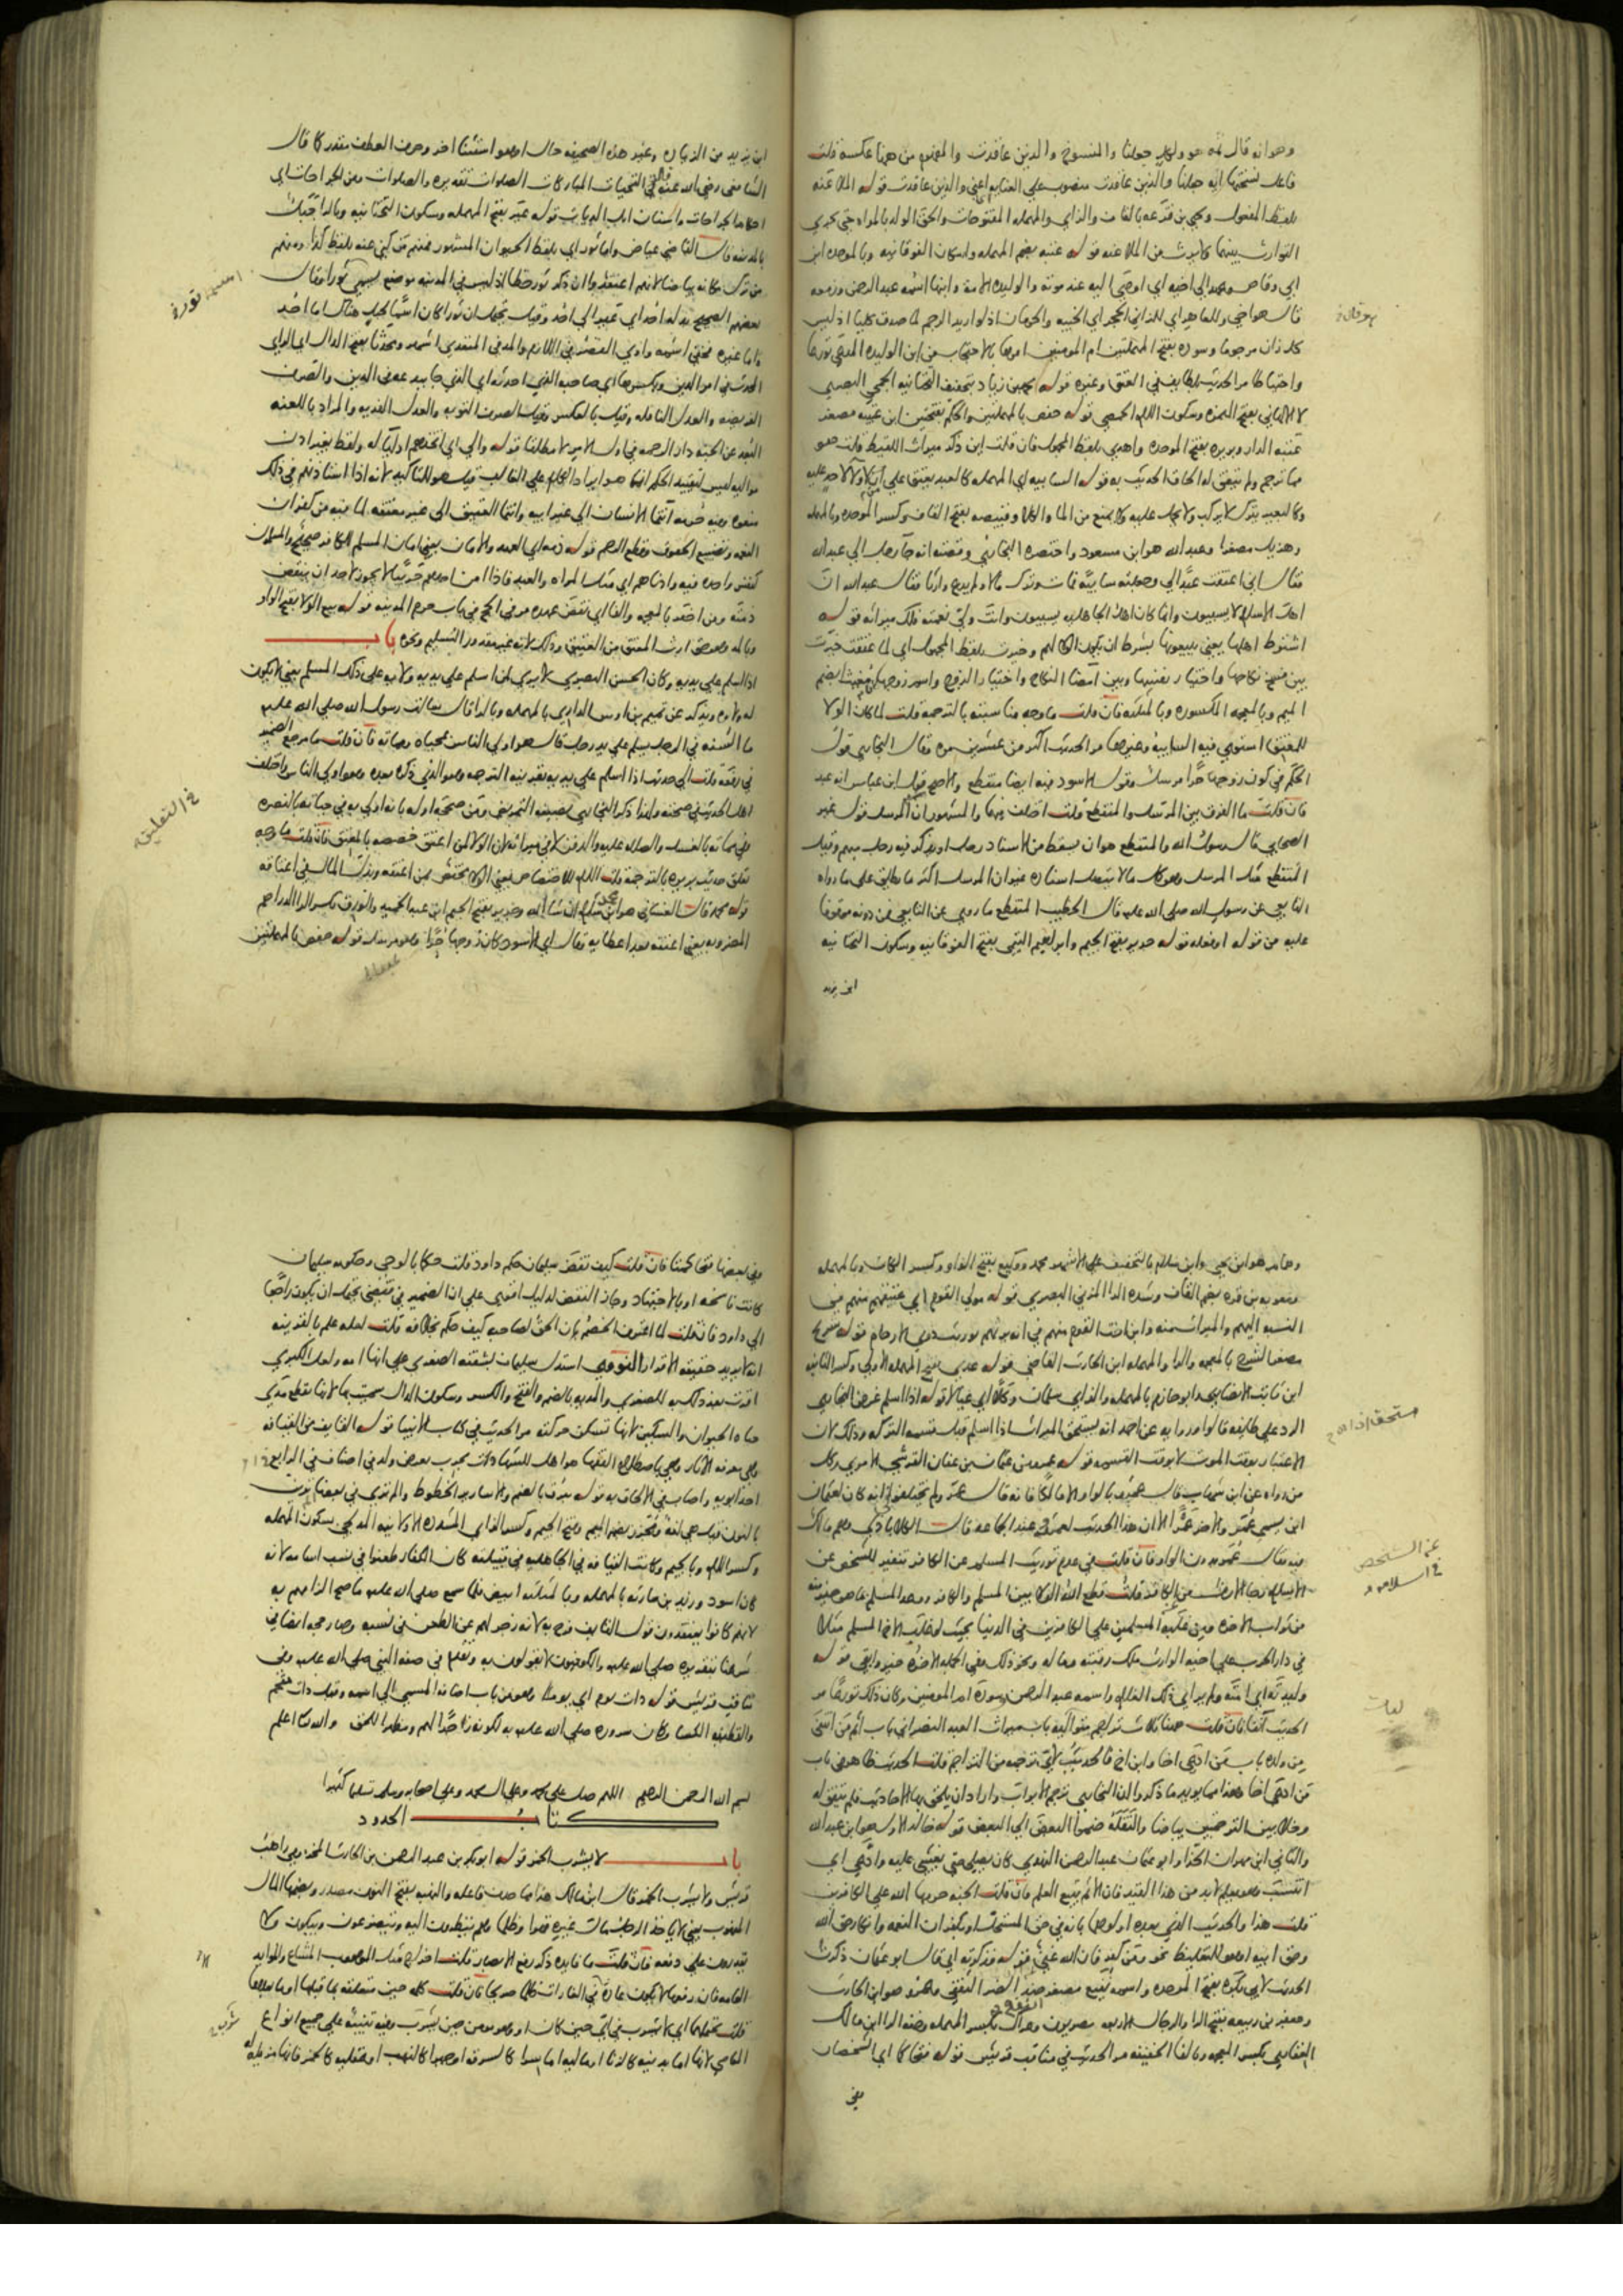 وهو انه قال له هو ولكل جعلنا والمنسوخ والذين عاقدت والمفهوم من هنا عكسه قلت
فاعل نسختها اية جعلنا والذين عاقدت منصوب على العناية اعني والذين عاقدت قوله الملاعنة
بلفظ المفعول ويحيى بن قزعة بالقاف والزاي والمهملة المفتوحات والحق الولد بالمراة حتى يجري
التوارث بينهما ولا يرث من الملاعنة قوله عتبة بضم المهملة واسكان الفوقانية وبالموحدة ابن
ابي وقاص وعهد الى اخيه اي اوصى اليه عند موته والوليدة الامة وابنها اسمه عبد الرحمن وزمعة
قال هو اخي وللعاهر اي للزاني الحجر اي الخيبة والحرمان اذ لو اريد الرجم لما صدق كليا اذ ليس
كل زان مرجوما وسودة بفتح المهملتين ام المومنين امرها بالاحتجاب من ابن الوليدة المدعي تورعا
واحتياطا مر الحديث بلطايف في العتق وغيره قوله محمد بن زياد بتخفيف التحتانية الجمحي البصري
لا الالهاني بفتح الهمزة وسكون اللام الحمصي قوله حفص بالمهملتين والحكم بفتحتين ابن عتيبة مصغر
عتبة الدار وبريرة بفتح الموحدة واهدي بلفظ المجهول فان قلت اين ذكر ميراث اللقيط قلت هو
مما ترجم ولم يتفق له الحاق الحديث به قوله السايبة اي المهملة كالعبد يعتق على ان لا ولاء لاحد عليه
وكالبعير يترك لا يركب ولا يحمل عليه ولا يمنع من الماء والكلا وقبيصة بفتح القاف وكسر الموحدة وبالمهملة
وهزيل مصغرا وعبد الله هو ابن مسعود واختصره البخاري وقصته انه جا رجل الى عبد الله
فقال اني اعتقت عبدا لي وجعلته سايبة فمات وترك مالا ولم يدع وارثا فقال عبد الله ان
اهل الاسلام لا يسيبون وانما كان اهل الجاهلية يسيبون وانت ولي نعمته فلك ميراثه قوله
اشترط اهلها يعني يبيعونها بشرط ان يكون الولا لهم وخيرت بلفظ المجهول اي لما عتقت خيرت
بين فسخ نكاحها واختيار نفسها وبين امضا النكاح واختيار الزوج واسم زوجها مغيث بضم
الميم وبالمعجمة المكسورة وبالمثلثة فان قلت ما وجه مناسبته بالترجمة قلت لما كان الولا
للمعتق استوى فيه السايبة وغيرها مر الحديث اكثر من عشرين مرة وقال البخاري قول
الحكم في كون زوجها حرا مرسل وقول الاسود فيه ايضا منقطع والاصح قول ابن عباس انه عبد
فان قلت ما الفرق بين المرسل والمنقطع قلت اختلف فيهما والمشهور ان المرسل قول غير
الصحابي قال رسول الله والمنقطع هو ان يسقط من الاسناد رجل او يذكر فيه رجل مبهم وقيل
المنقطع مثل المرسل وهو كل ما لا يتصل اسناده غير ان المرسل اكثر ما يطلق على ما رواه
التابعي عن رسول الله صلى الله عليه قال الخطيب المنقطع ما روي عن التابعي فمن دونه موقوفا
عليه من قوله او فعله قوله جرير بفتح الجيم وابراهيم التيمي بفتح الفوقانية وسكون التحتانية
ابن يزيد
ابن يزيد من الزيادة وغير هذه الصحيفة حال او هو استثنا اخر وحرف العطف مقدر كما قال
الشافعي رضي الله عنه في التحيات المباركات الصلوات تقديره والصلوات ومن الجراحات اي
احكام الجراحات واسنان ابل الديات قوله عير بفتح المهملة وسكون التحتانية وبالرا جبل
بالمدينة قال القاضي عياض واما ثور اي بلفظ الحيوان المشهور فمنهم من كنى عنه بلفظ كذا ومنهم
من ترك مكانه بياضا لانهم اعتقدوا ان ذكر ثور خطا اذ ليس في المدينة موضع يسمى ثورا وقال
بعضهم الصحيح بدله احد اي عير الى احد وقيل يحتمل ان ثورا كان اسما لجبل هناك اما احد
واما غيره فخفي اسمه واوي القصر في اللازم والمد في المتعدي اشهر ومحدثا بفتح الدال اي الراي
المحدث في امر الدين وبكسرها اي صاحبه الذي احدثه اي الذي جا ببدعة في الدين والصرف
الفريضة والعدل النافلة وقيل بالعكس وقيل الصرف التوبة والعدل الفدية والمراد باللعنة
البعد عن الجنة دار الرحمة في اول الامر لا مطلقا قوله والى اي اتخذهم اوليا له ولفظ بغير اذن
مواليه ليس لتقييد الحكم انما هو ايراد الكلام على الغالب وقيل هو للتاكيد لانه اذا استاذنهم في ذلك
منعوه وفيه حرمة انتما الانسان الى غير ابيه وانتما العتيق الى غير معتقه لما فيه من كفران
النعمة وتضييع الحقوق وقطع الرحم قوله ذمة اي العهد والامان يعني امان المسلم للكافر صحيح والمسلمون
كنفس واحدة فيه وادناهم اي مثل المراة والعبد فاذا امن احدهم حربيا لا يجوز لاحد ان ينقض
ذمته ومن اخفر بالمعجمة والفا اي نقض عهده مر في الحج في باب حرم المدينة قوله بيع الولا بفتح الواو
وبالمد وهو حق ارث المعتق من العتيق وذلك لانه غير مقدور التسليم ونحوه باب
اذا اسلم على يديه وكان الحسن البصري لا يرى لمن اسلم على يديه ولاية على ذلك المسلم يعني لا يكون
له ولاوه ويذكر عن تميم بن اوس الداري بالمهملة وبالرا قال سالت رسول الله صلى الله عليه
ما السنة في الرجل يسلم على يد رجل قال هو اولى الناس بمحياه ومماته فان قلت ما مرجع الضمير
في رفعه قلت الى حديث اذا اسلم على يديه بقرينة الترجمة وهو الذي ذكره بعده وهو اولى الناس واختلف
اهل الحديث في صحته ولذا ذكر البخاري بصيغة التمريض ومن صححه اوله بانه اولى به في حياته بالنصرة
وفي مماته بالغسل والصلاة عليه والدفن لا في ميراثه لان الولا لمن اعتق خصصه بالمعتق فان قلت ما وجه
تعلق حديث بريرة بالترجمة قلت اللام للاختصاص يعني الولا مختص بمن اعتقه وبذل المال في اعتاقه
قوله محمد قال الغساني هو ابن سلام ان شا الله وجرير بفتح الجيم ابن عبد الحميد والورق بكسر الرا الدراهم
المضروبة يعني اعتقته بعد اعطايه وقال اي الاسود كان زوجها حرا وهو مرسل قوله حفص بالمهملتين
وهمام هو ابن يحيى وابن سلام بالتخفيف على الاشهر محمد ووكيع بفتح الواو وكسر الكاف وبالمهملة
ومعوية بن قرة بضم القاف وشدة الرا المزني البصري قوله مولى القوم اي عتيقهم منهم في
النسبة اليهم والميراث منه وابن اخت القوم منهم في انه يرثهم توريث ذوي الارحام قوله شريح
مصغر الشرح بالمعجمة والرا والمهملة ابن الحارث القاضي قوله عدي بفتح المهملة الاولى وكسر الثانية
ابن ثابت الانصاري وابو حازم بالمهملة والزاي سلمان وكلا اي عيالا قوله اذا اسلم غرض البخاري
الرد على طايفة قالوا ورواية عن احمد انه يستحق الميراث اذا اسلم قبل قسمة التركة وذلك لان
الاعتبار بوقت الموت لا بوقت القسمة قوله عمرو بن عثمان بن عفان القرشي الاموي وكل
من رواه عن ابن شهاب قال عمرو بالواو الا مالكا فانه قال عمر ولم يختلفوا في انه كان لعثمان
ابن يسمى عمر والاخر عمرا الا ان هذا الحديث لعمرو عند الجماعة قال الكلاباذي وهم مالك
فيه فقال عمر بدون الواو فان قلت في عدم توريث المسلم عن الكافر تنفير للشخص عن
الاسلام
من ثواب الاخرة
في دار الحرب على اخيه الوارث ملك رقبته وماله ونحو ذلك ففي الجملة الاخرة خير وابقى قوله
وليدته اي امته ولم ير اي ذلك الغلام واسمه عبد الرحمن سودة ام المومنين وكان ذلك تورعا مر
الحديث انفا فان قلت هنا ثلاث تراجم متوالية باب ميراث العبد النصراني باب اثم من انتفى
من ولده باب من ادعى اخا وابن اخ فالحديث لاي ترجمة من التراجم قلت الحديث ظاهر في باب
من ادعى اخا وهذا مما يويد ما ذكروا ان البخاري ترجم الابواب واراد ان يلحق بها الاحاديث فلم يتفق له
وخلا بين الترجمتين بياضا والنقلة ضموا البعض الى البعض قوله خالد الاول هو ابن عبد الله
والثاني ابن مهران الحذا وابو عثمان عبد الرحمن النهدي كان يصلي حتى يغشى عليه وادعى اي
انتسب وهو يعلم لا بد من هذا القيد فان الاثم يتبع العلم فان قلت الجنة حرمها الله على الكافرين
قلت هذا والحديث الذي بعده اولوهما بانه في حق المستحل او بكفران النعمة وانكار حق الله
وحق ابيه او هو للتغليظ نحو ومن كفر فان الله غني قوله فذكرته اي قال ابو عثمان ذكرت
الحديث لابي بكرة بفتح الموحدة واسمه نفيع مصغر ضد الضر الثقفي وعمرو هو ابن الحارث
وجعفر بن ربيعة بفتح الرا والرجال الاربعة مصريون وعراك بكسر المهملة وخفة الرا ابن مالك
الغفاري بكسر المعجمة وبالفا الخفيفة مر الحديث في مناقب قريش قوله فتحاكما اي الشخصان
وفي بعضها فتحاكمتا فان قلت كيف نقض سليمان حكم داود قلت حكما بالوحي وحكومة سليمان
كانت ناسخة او بالاجتهاد وجاز النقض لدليل اقوى على ان الضمير في فقضى يحتمل ان يكون راجعا
الى داود فان قلت لما اعترف الخصم بان الحق لصاحبه كيف حكم بخلافه قلت لعله علم بالقرينة
انه لا يريد حقيقة الاقرار النووي استدل سليمان بشفقة الصغرى على انها امه ولعل الكبرى
اقرت بعد ذلك به للصغرى والمدية بالضم والفتح والكسر وسكون الدال سميت بها لانها تقطع مدى
حياة الحيوان والسكين لانها تسكن حركته مر الحديث في كتاب الانبيا قوله القايف من القيافة
وهي معرفة الاثار وهي باصطلاح الفقها هو اهل للشهادات مجرب بعرض ولد في اصناف في الرابع
احد ابويه واصاب في الالحاق به قوله تبرق بالضم والاسارير الخطوط والم تري في بعضها ترين
بالنون قيل هي لغة ومجزز بضم الميم وفتح الجيم وكسر الزاي المشددة الاولى المدلجي بسكون المهملة
وكسر اللام وبالجيم وكانت القيافة في الجاهلية في قبيلته كان الكفار طعنوا في نسب اسامة لانه
كان اسود وزيد بن حارثة بالمهملة وبالمثلثة ابيض فلما سمع صلى الله عليه
لانهم كانوا يعتقدون قول القايف فرح به لانه زجر لهم عن الطعن في نسبه وصار حجة ايضا في
شرعنا بتقديره صلى الله عليه والكوفيون لا يقولون به وتقدم في صفة النبي صلى الله عليه وفي
مناقب قريش قوله ذات يوم اي يوما وهو من باب اضافة المسمى الى اسمه وقيل ذات مقحم
والقطيفة الكسا وكان سروره صلى الله عليه به لكونه زاجرا لهم ومظهرا للحق والله اعلم
بسم الله الرحمن الرحيم اللهم صل على محمد وعلى ال محمد وعلى اصحابه وسلم تسليما كثيرا
كتاب الحدود
باب لا يشرب الخمر قوله ابو بكر بن عبد الرحمن بن الحارث المخزومي راهب
قريش ولا يشرب الخمر قال ابن مالك هذا مما حذف فاعله والنهبة بفتح النون مصدر وبضمها المال
المنهوب يعني لا ياخذ الرجل مال غيره قهرا وظلما وهم ينظرون اليه ويتضرعون ويبكون ولا
يقدرون على دفعه فان قلت ما فايدة ذكر رفع الابصار قلت اخراج مثل الموهوب المشاع والموايد
العامة فان رفعها لا يكون عادة في الغارات ظلما صريحا فان قلت كلمة حين متعلقة بما قبلها او بما بعدها
قلت تحتملهما اي لا يشرب في اي حين كان او وهو مومن حين يشرب وفيه تنبيه على جميع انواع
المعاصي لانها اما بدنية كالزنا او مالية اما سرا كالسرقة او جهرا كالنهب او عقلية كالخمر فانها مزيلة له